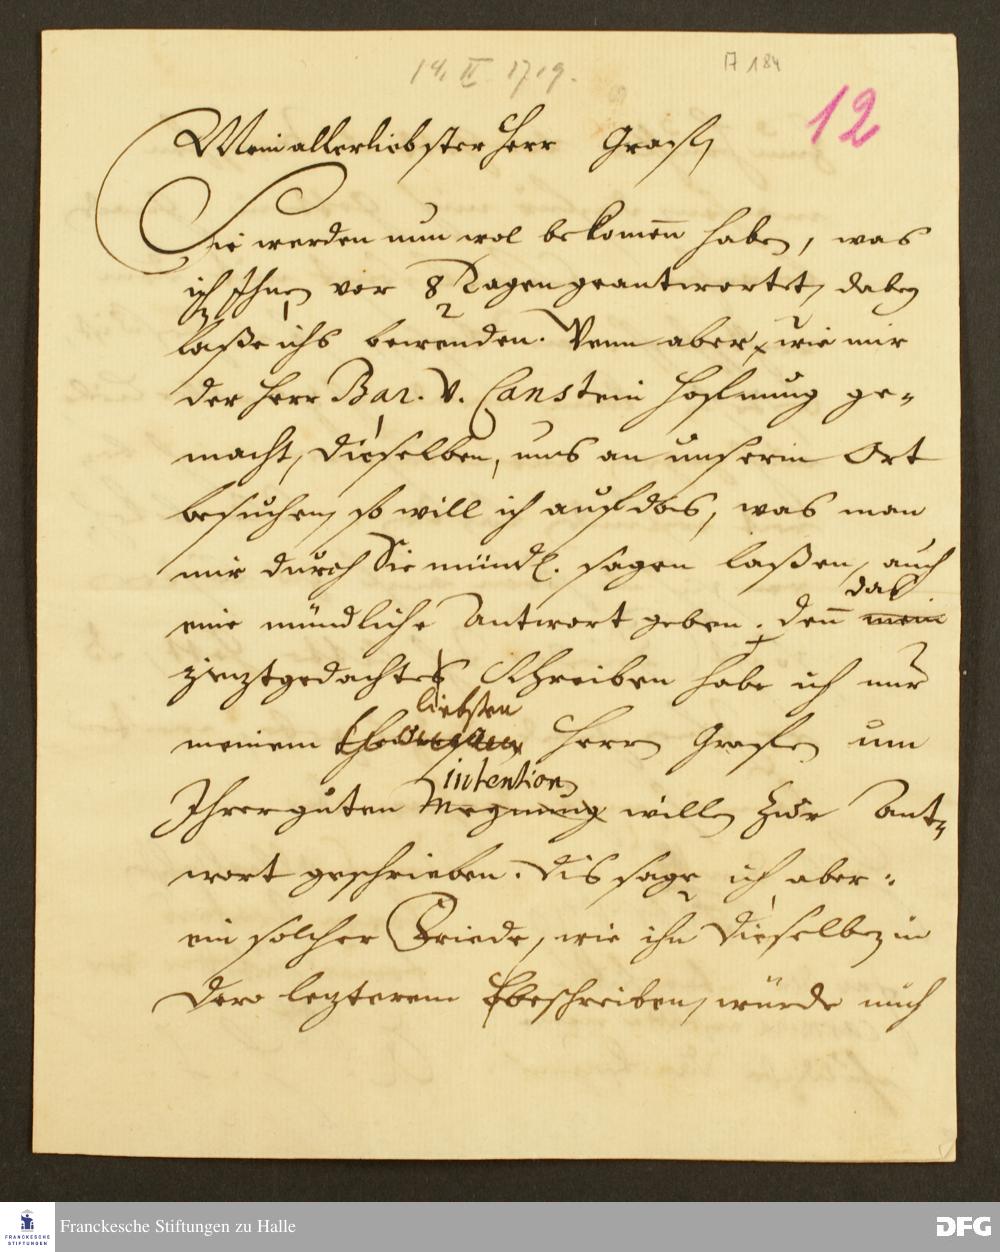 14. II. 1719.
A 184
12
Mein allerliebster Herr Graff,
Sie werden nun wol bekomen haben, was
ich Ihnen vor 8 Tagen geantwortet, dabey
laße ichs bewenden. Wenn aber, wie mir
der Herr Bar. v. Canstein Hoffnung ge-
macht, dieselben, uns an unserm Ort
besuchen, so will ich auf das, was man
mir durch Sie mündl. sagen laßen, auch
eine mündliche Antwort geben. Denn das mein
jetztgedachtes Schreiben habe ich nur
meinem liebsten Herrn Graffen um
Ihrer guten intention Meynung willen zur Ant-
wort geschrieben. Dis sage ich aber:
ein solcher Friede, wie ihn dieselben in
Dero letzterem beschreiben, würde mich
Franckesche Stiftungen zu Halle
FRANCKESCHE
STIFTUNGEN
DFG